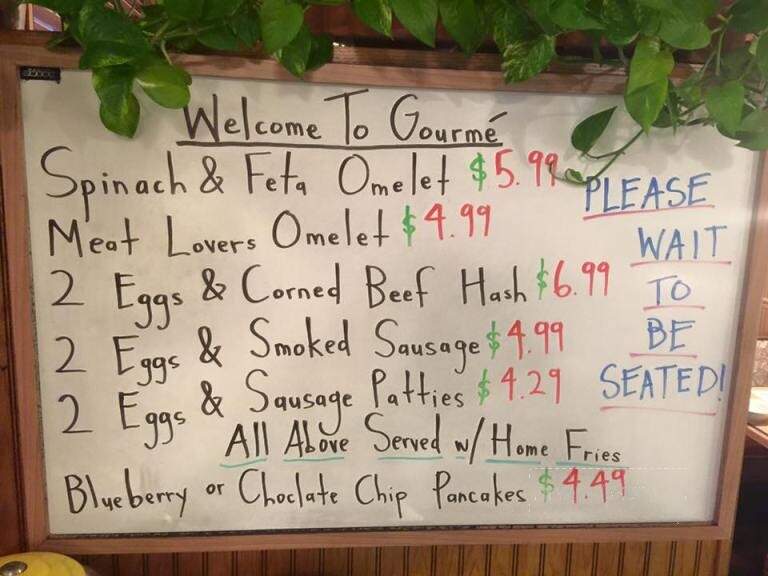 Welcome To Gourmé
Spinach & Feta Omelet $5.99
Meat Lovers Omelet $4.99
2 Eggs & Corned Beef Hash $6.99
2 Eggs & Smoked Sausage $4.99
2 Eggs & Sausage Patties $4.29
All Above Served w/ Home Fries
Blueberry or Choclate Chip Pancakes $4.49
PLEASE
WAIT
TO
BE
SEATED!